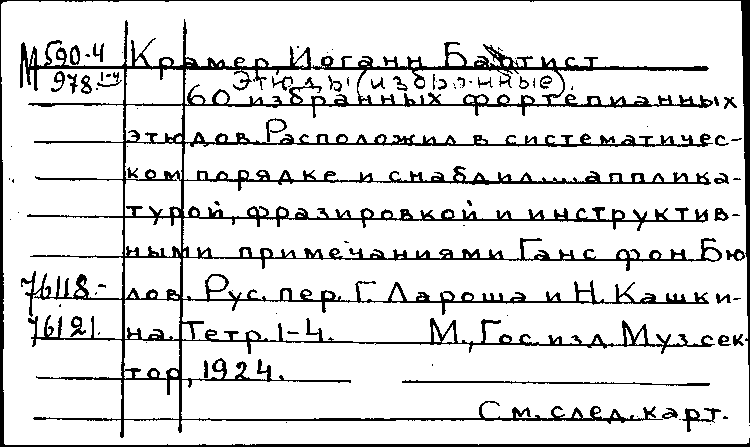 М 590-4 Крамер, Иоганн Баптист
978 1-4 Этюды (избранные).
60 избранных фортепианных
этюдов. Расположил в систематичес-
ком порядке и снабдил... апплика-
турой, фразировкой и инструктив-
ными примечаниями Ганс фон Бю
76118- лов. Рус. пер. Г. Лароша и Н. Кашки-
76121. на. Тетр. 1-4. М., Гос. изд. Муз. сек-
тор, 1924.
См. след. карт.